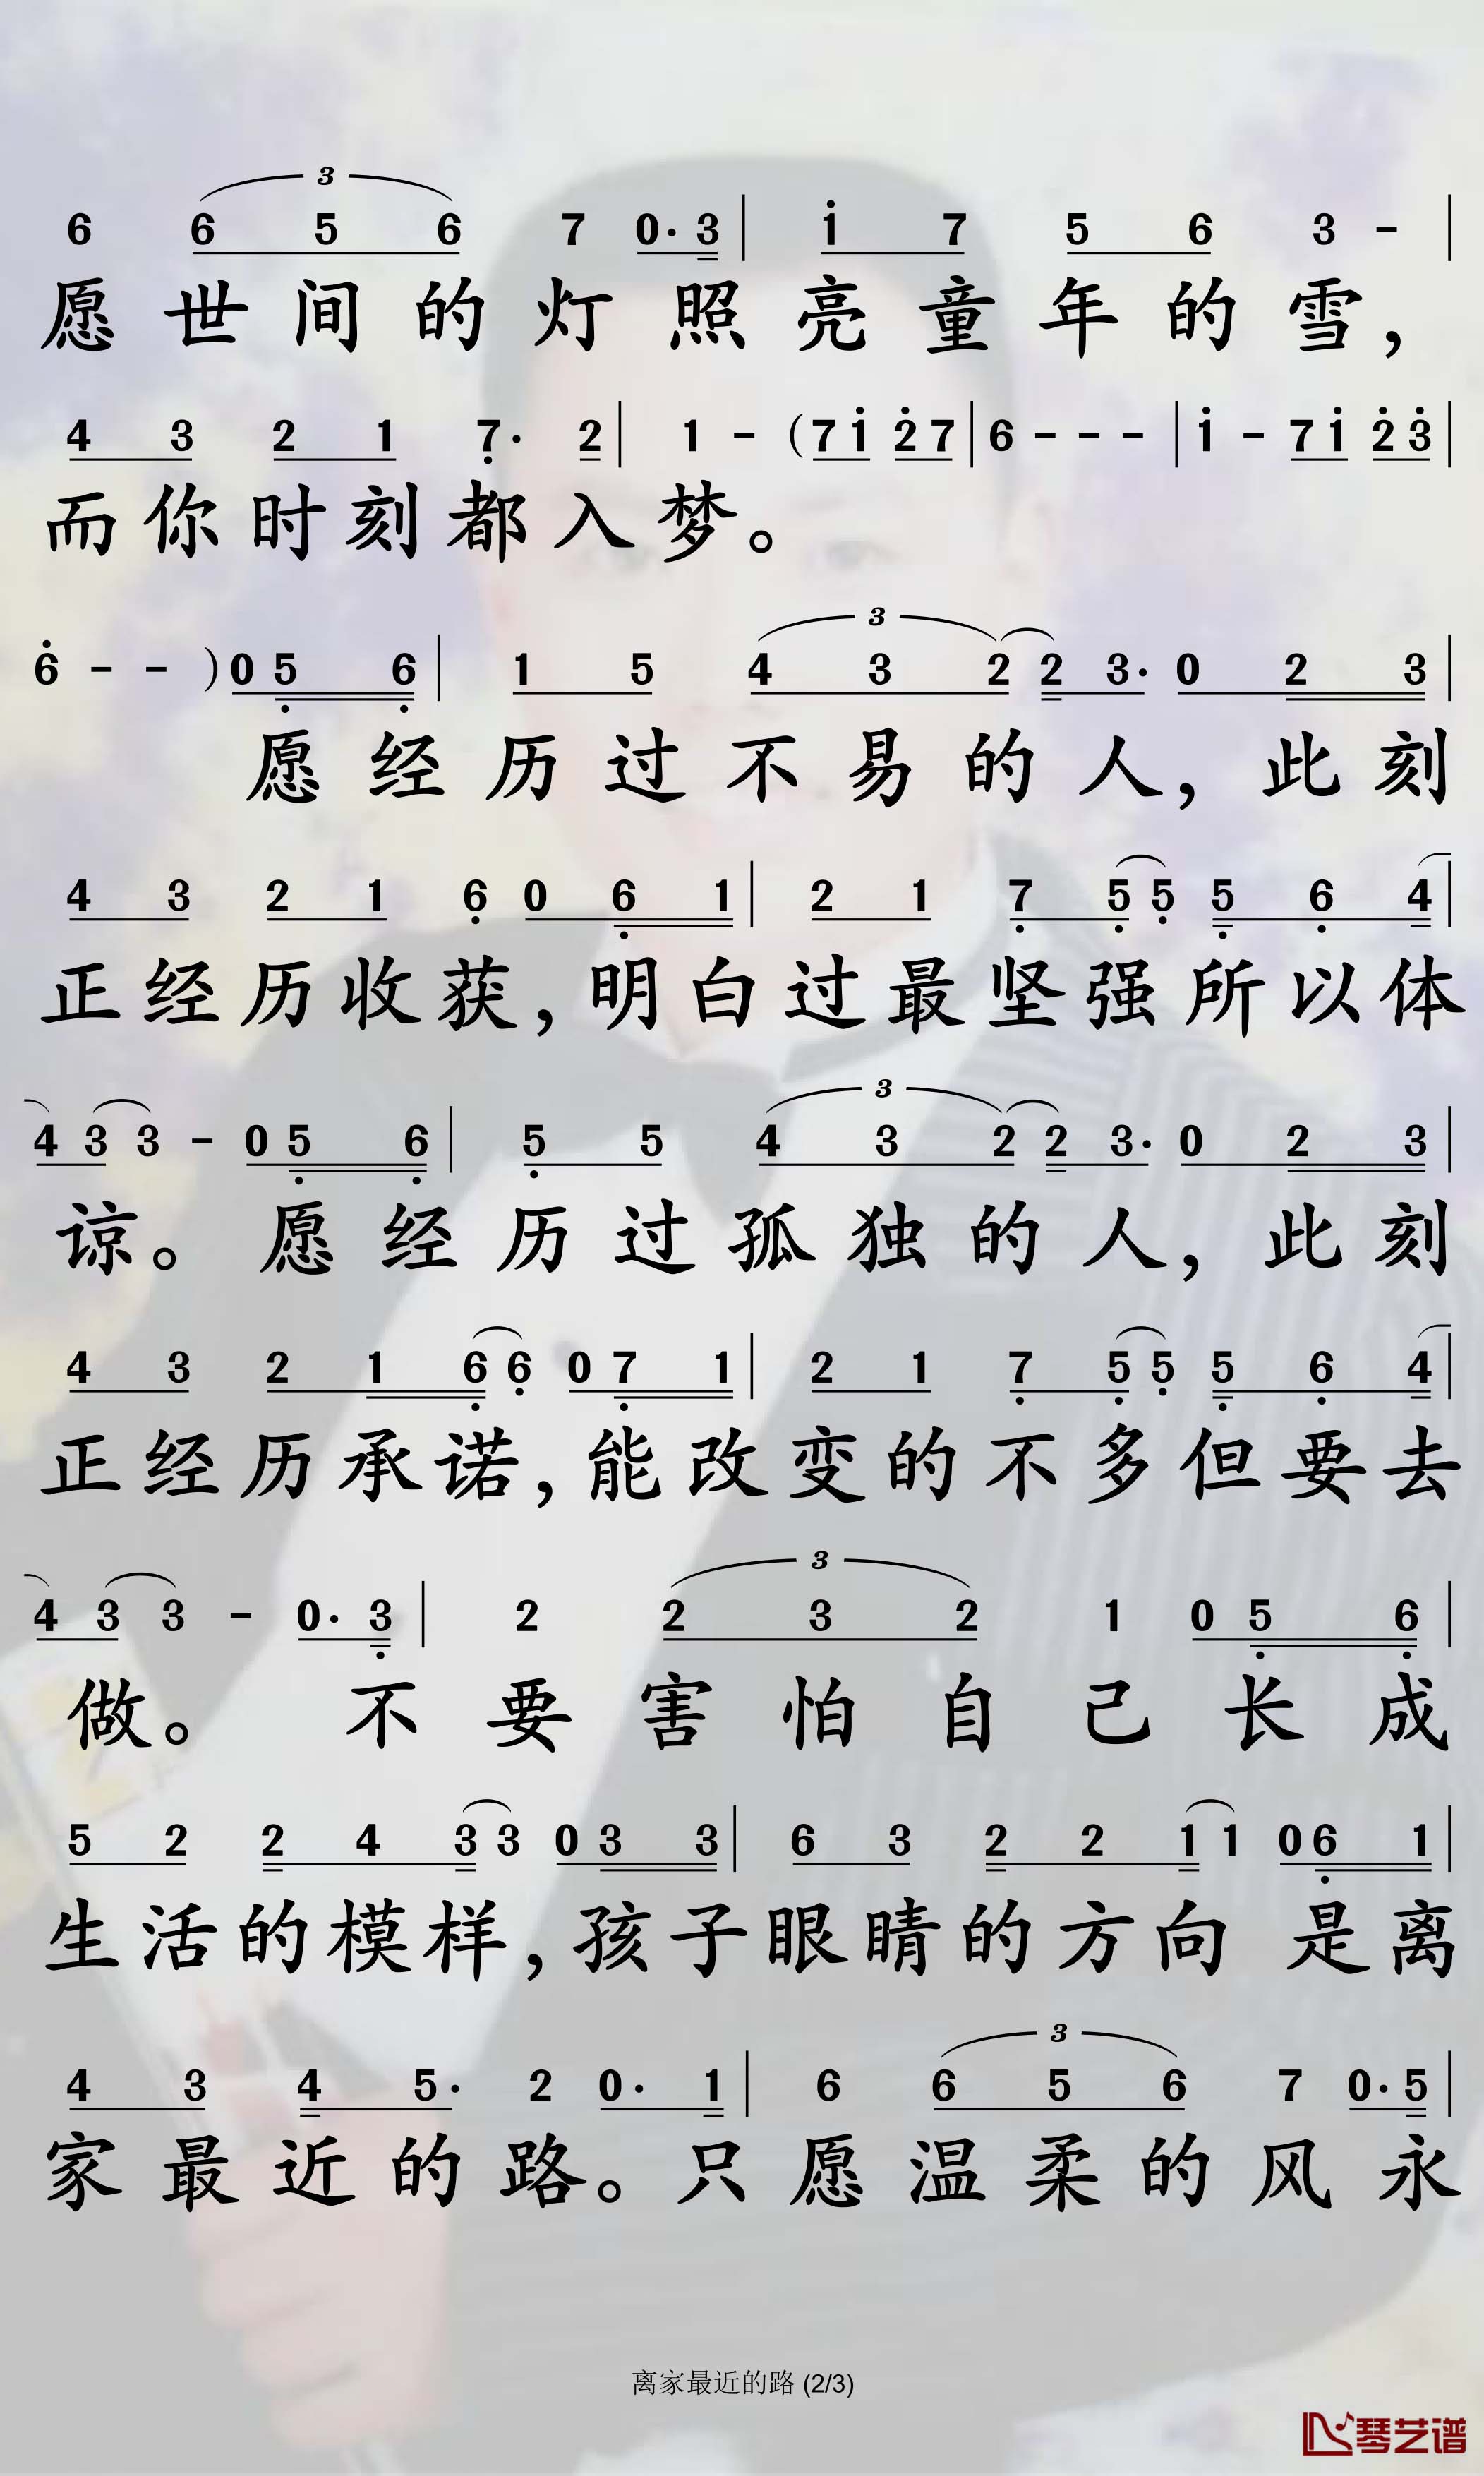 3
6 6 5 6 7 0· 3 | i 7 5 6 3 - |
愿世间的灯照亮童年的雪，
4 3 2 1 7̣· 2 | 1 - (7 i 2̇ 7 | 6 - - - | i - 7 i 2̇ 3̇ |
而你时刻都入梦。
3
6̇ - - ) 0 5̣ 6̣ | 1 5 4 3 2 2 3· 0 2 3 |
愿经历过不易的人，此刻
4 3 2 1 6̣ 0 6̣ 1 | 2 1 7̣ 5̣ 5̣ 5̣ 6̣ 4 |
正经历收获，明白过最坚强所以体
3
4 3 3 - 0 5̣ 6̣ | 5̣ 5 4 3 2 2 3· 0 2 3 |
谅。愿经历过孤独的人，此刻
4 3 2 1 6̣ 6̣ 0 7̣ 1 | 2 1 7̣ 5̣ 5̣ 5̣ 6̣ 4 |
正经历承诺，能改变的不多但要去
3
4 3 3 - 0· 3̣ | 2 2 3 2 1 0 5̣ 6̣ |
做。不要害怕自己长成
5 2 2 4 3 3 0 3 3 | 6 3 2 2 1 1 0 6̣ 1 |
生活的模样，孩子眼睛的方向 是离
3
4 3 4 5· 2 0· 1 | 6 6 5 6 7 0· 5 |
家最近的路。只愿温柔的风永
离家最近的路 (2/3)
琴艺谱